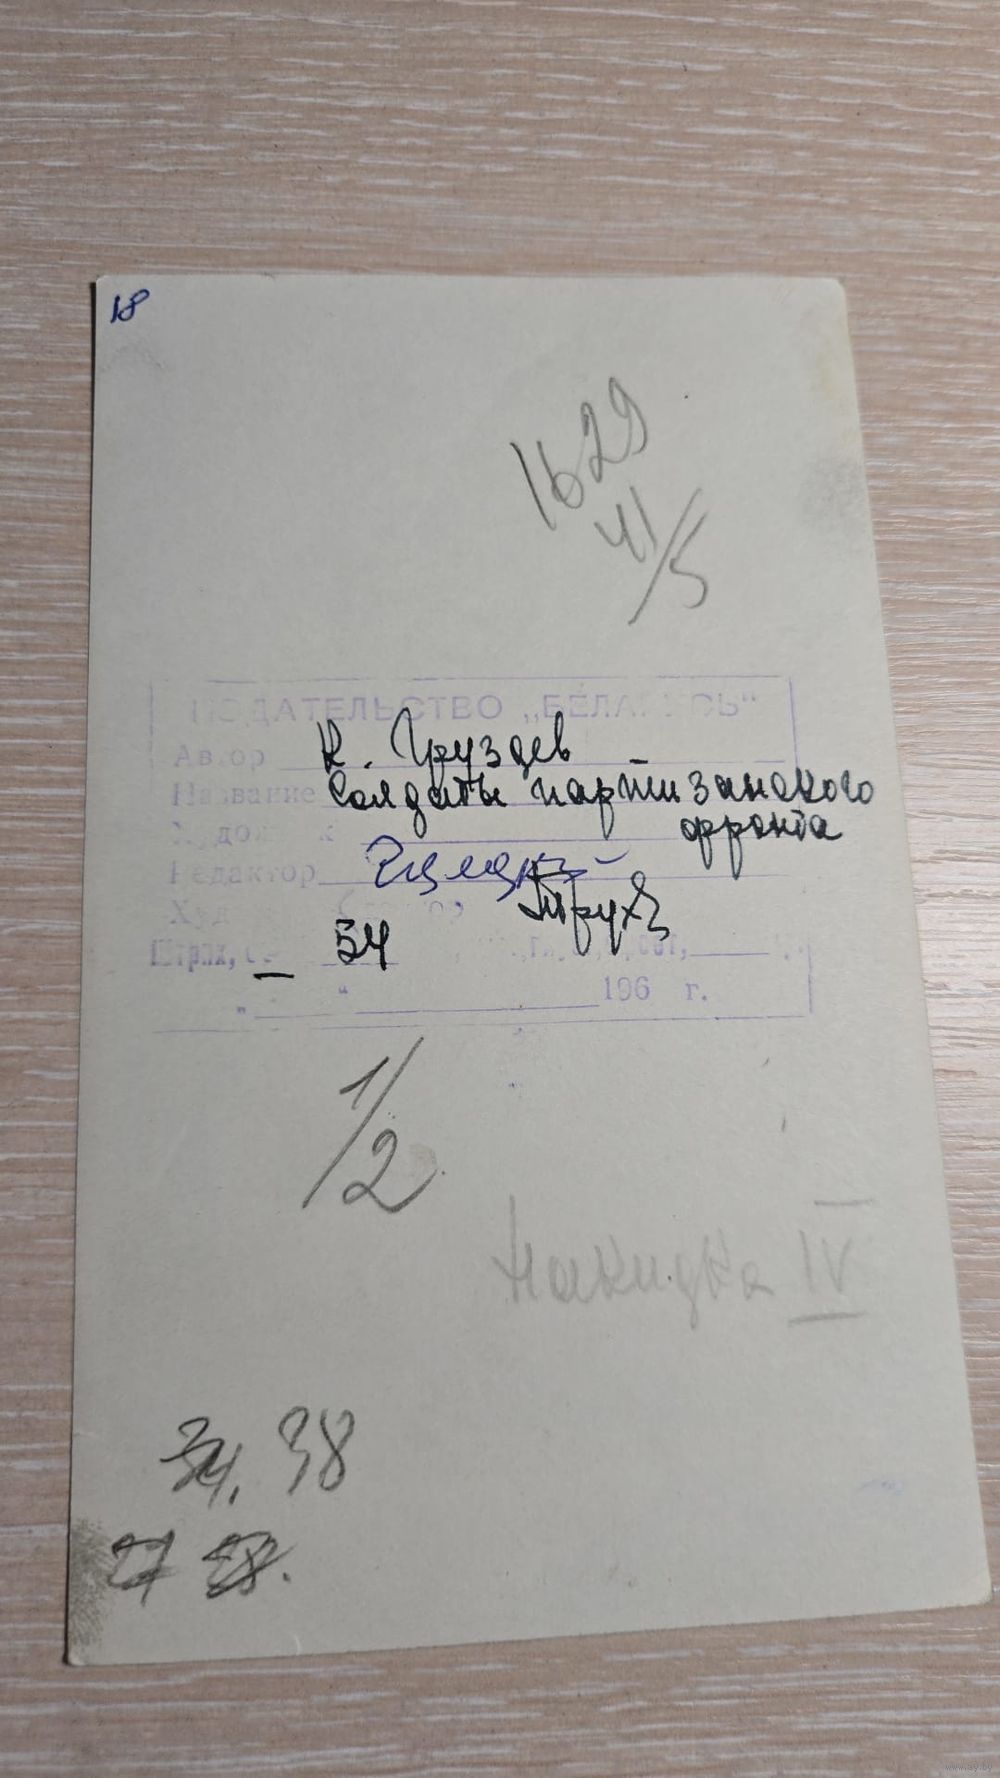 18
1629
41/5
ИЗДАТЕЛЬСТВО „БЕЛАРУСЬ“
Автор К. Груздев
Название Солдаты партизанского
фронта
Художник
Редактор
Худ
Штрих,
54
„ “ 196 г.
1/2
Накидка IV
34. 38
www.ay.by